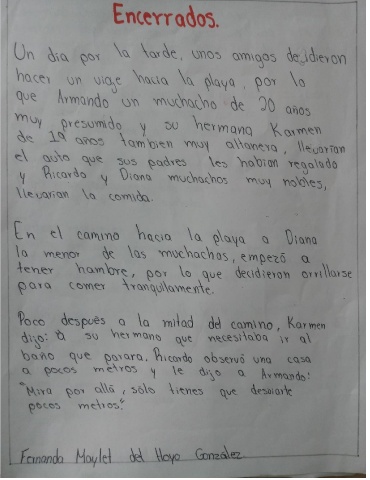 Encerrados.
Un dia por la tarde, unos amigos decidieron
hacer un viage hacia la playa, por lo
que Armando un muchacho de 20 años
muy presumido y su hermana Karmen
de 19 años tambien muy altanera, llevarian
el auto que sus padres les habian regalado
y Ricardo y Diana muchachos muy nobles,
llevarian la comida.
En el camino hacia la playa a Diana
la menor de las muchachas, empezó a
tener hambre, por lo que decidieron orrillarse
para comer tranquilamente.
Poco después a la mitad del camino, Karmen
dijo: a su hermano que necesitaba ir al
baño que parara. Ricardo observó una casa
a pocos metros y le dijo a Armando:
"Mira por allá, sólo tienes que desviarte
pocos metros."
Fernanda Maylet del Hoyo González